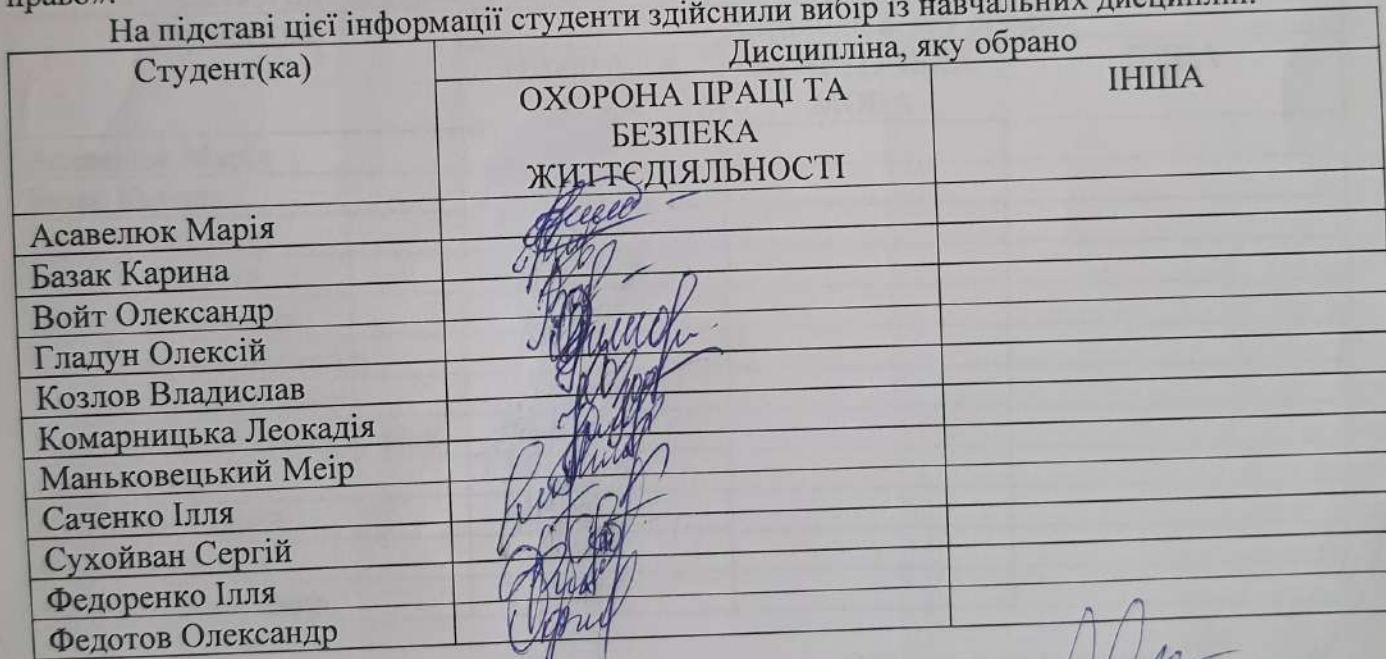 На підставі цієї інформації студенти здійснили вибір із навчальних дисциплін:
Студент(ка)
Дисципліна, яку обрано
ОХОРОНА ПРАЦІ ТА
БЕЗПЕКА
ЖИТТЄДІЯЛЬНОСТІ
ІНША
Асавелюк Марія
Базак Карина
Войт Олександр
Гладун Олексій
Козлов Владислав
Комарницька Леокадія
Маньковецький Меір
Саченко Ілля
Сухойван Сергій
Федоренко Ілля
Федотов Олександр